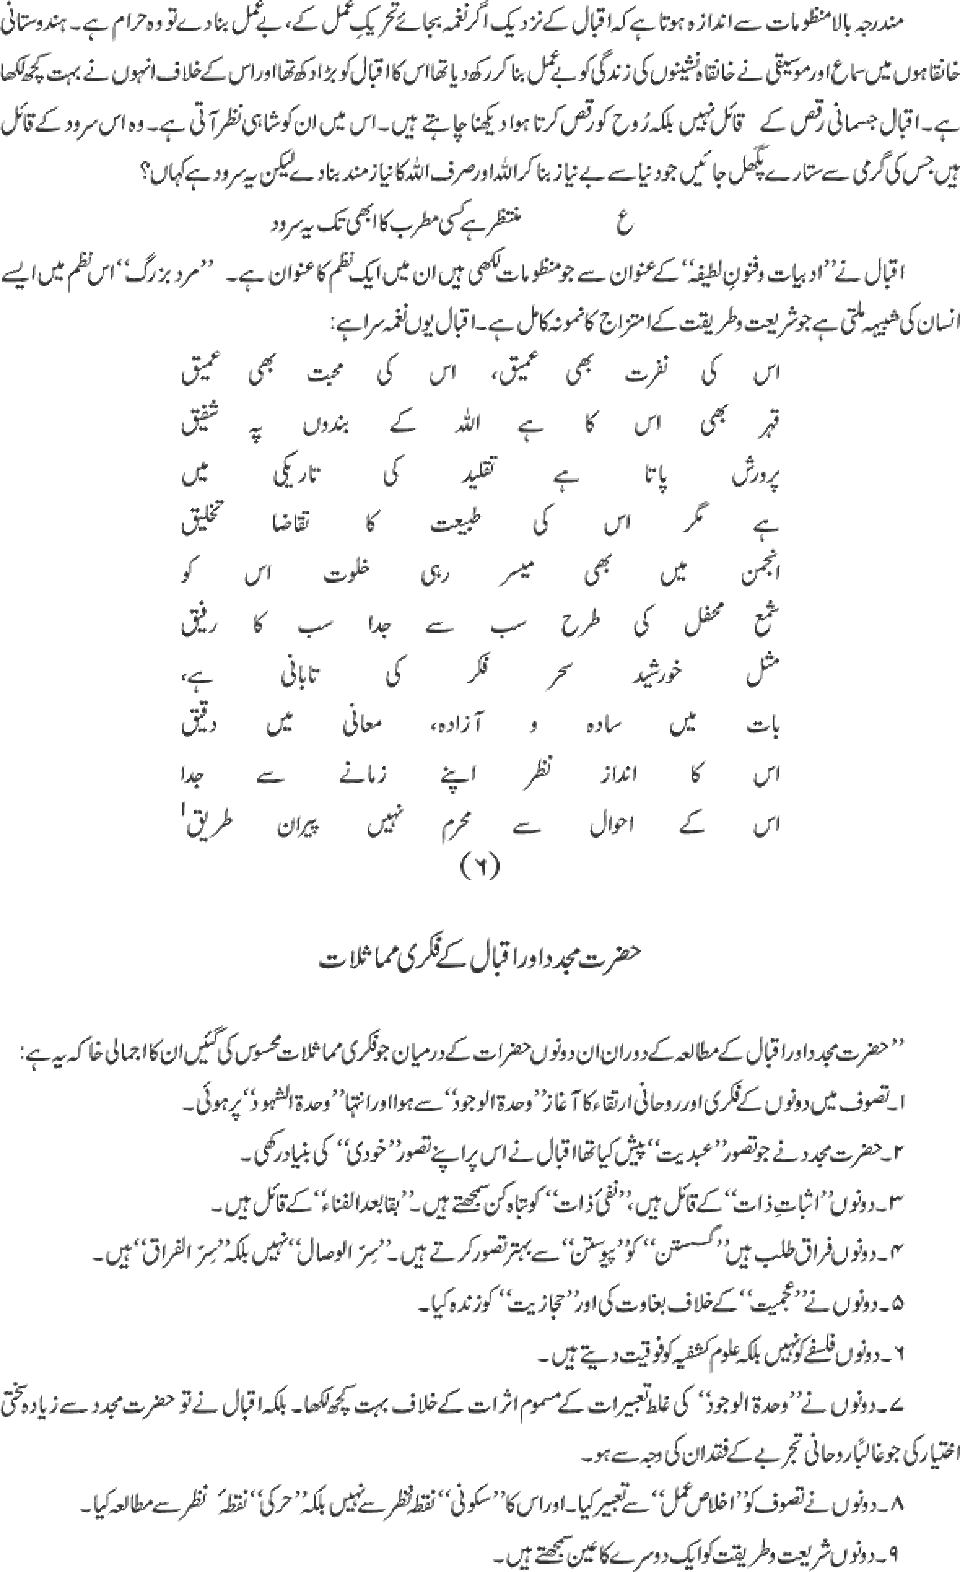 مندرجہ بالا منظومات سے اندازہ ہوتا ہے کہ اقبال کے نزدیک اگر نغمہ بجائے تحریکِ عمل کے، بے عمل بنا دے تو وہ حرام ہے۔ ہندوستانی
خانقاہوں میں سماع اور موسیقی نے خانقاہ نشینوں کی زندگی کو بے عمل بنا کر رکھ دیا تھا اس کا اقبال کو بڑا دکھ تھا اور اس کے خلاف انہوں نے بہت کچھ لکھا
ہے۔ اقبال جسمانی رقص کے قائل نہیں بلکہ رُوح کو رقص کرتا ہوا دیکھنا چاہتے ہیں۔ اس میں ان کو شاہی نظر آتی ہے۔ وہ اس سرود کے قائل
ہیں جس کی گرمی سے ستارے پگھل جائیں جو دنیا سے بے نیاز بنا کر اللہ اور صرف اللہ کا نیاز مند بنا دے لیکن یہ سرود ہے کہاں؟
ع منتظر ہے کسی مطرب کا ابھی تک یہ سرود
اقبال نے ”ادبیات و فنونِ لطیفہ“ کے عنوان سے جو منظومات لکھی ہیں ان میں ایک نظم کا عنوان ہے۔ ”مرد بزرگ“ اس نظم میں ایسے
انسان کی شبیہہ ملتی ہے جو شریعت و طریقت کے امتزاج کا نمونہ کامل ہے۔ اقبال یوں نغمہ سرا ہے:
اس کی نفرت بھی عمیق، اس کی محبت بھی عمیق
قہر بھی اس کا ہے اللہ کے بندوں پہ شفیق
پرورش پاتا ہے تقلید کی تاریکی میں
ہے مگر اس کی طبیعت کا تقاضا تخلیق
انجمن میں بھی میسر رہی خلوت اس کو
شمع محفل کی طرح سب سے جدا سب کا رفیق
مثل خورشید سحر فکر کی تابانی ہے،
بات میں سادہ و آزادہ، معانی میں دقیق
اس کا انداز نظر اپنے زمانے سے جدا
اس کے احوال سے محرم نہیں پیران طریق۱
(۶)
حضرت مجدد اور اقبال کے فکری مماثلات
”حضرت مجدد اور اقبال کے مطالعہ کے دوران ان دونوں حضرات کے درمیان جو فکری مماثلات محسوس کی گئیں ان کا اجمالی خاکہ یہ ہے:
۱۔ تصوف میں دونوں کے فکری اور روحانی ارتقاء کا آغاز ”وحدۃ الوجود“ سے ہوا اور انتہا ”وحدۃ الشہود“ پر ہوئی۔
۲۔ حضرت مجدد نے جو تصور ”عبدیت“ پیش کیا تھا اقبال نے اس پر اپنے تصور ”خودی“ کی بنیاد رکھی۔
۳۔ دونوں ”اثباتِ ذات“ کے قائل ہیں، ”نفیٔ ذات“ کو تباہ کن سمجھتے ہیں۔ ”بقا بعد الفناء“ کے قائل ہیں۔
۴۔ دونوں فراق طلب ہیں ”گسستن“ کو ”پیوستن“ سے بہتر تصور کرتے ہیں۔ ”سِرّ الوصال“ نہیں بلکہ ”سِرّ الفراق“ ہیں۔
۵۔ دونوں نے ”عجمیت“ کے خلاف بغاوت کی اور ”حجازیت“ کو زندہ کیا۔
۶۔ دونوں فلسفے کو نہیں بلکہ علوم کشفیہ کو فوقیت دیتے ہیں۔
۷۔ دونوں نے ”وحدۃ الوجود“ کی غلط تعبیرات کے مسموم اثرات کے خلاف بہت کچھ لکھا۔ بلکہ اقبال نے تو حضرت مجدد سے زیادہ سختی
اختیار کی جو غالباً روحانی تجربے کے فقدان کی وجہ سے ہو۔
۸۔ دونوں نے تصوف کو ”اخلاص عمل“ سے تعبیر کیا۔ اور اس کا ”سکونی“ نقطۂ نظر سے نہیں بلکہ ”حرکی“ نقطۂ نظر سے مطالعہ کیا۔
۹۔ دونوں شریعت و طریقت کو ایک دوسرے کا عین سمجھتے ہیں۔